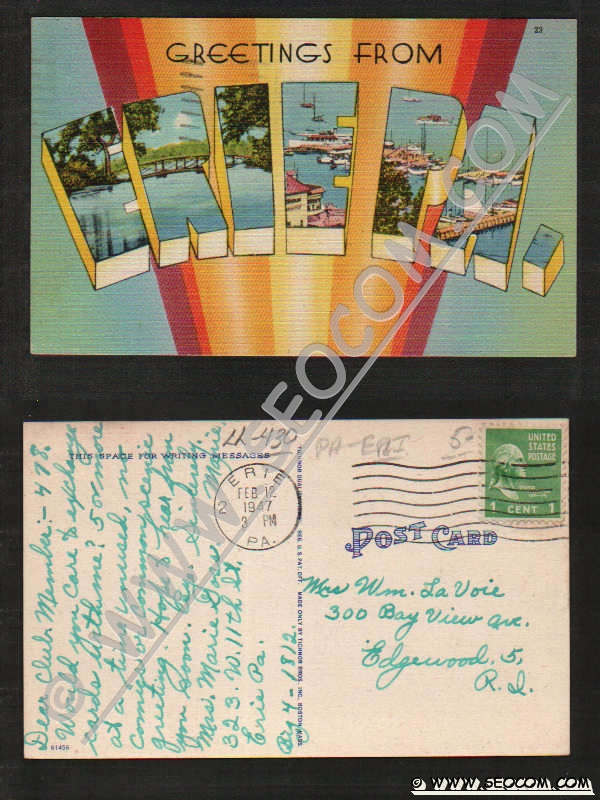 23
GREETINGS FROM
ERIE PA.
© WWW.SEOCOM.COM
LL-430
PA-ERI
5-
THIS SPACE FOR WRITING MESSAGES
ERIE
FEB 12
2
1947
3 PM
PA.
UNITED
STATES
POSTAGE
1 CENT 1
POST CARD
Mrs Wm. La Voie
300 Bay View Ave.
Edgewood, 5,
R.I.
Dear Club Member:- 478.
Would you care to exchange
cards with me? 50 or more
at a time, unused, no
comics or common scenic
greeting. Hope to hear from
you soon.
Mrs. Marie
323. W. 11th St.
Erie Pa.
1812.
MADE ONLY BY TICHNOR BROS., INC., BOSTON, MASS.
61456
© WWW.SEOCOM.COM